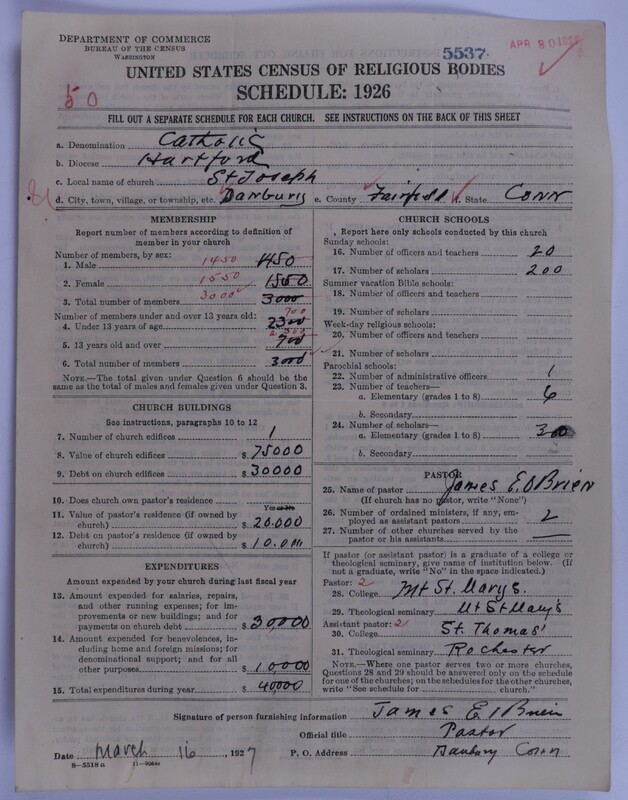 DEPARTMENT OF COMMERCE
BUREAU OF THE CENSUS
WASHINGTON
5537
APR 30
UNITED STATES CENSUS OF RELIGIOUS BODIES
50
SCHEDULE: 1926
FILL OUT A SEPARATE SCHEDULE FOR EACH CHURCH. SEE INSTRUCTIONS ON THE BACK OF THIS SHEET
a. Denomination Catholic
b. Diocese Hartford
c. Local name of church St Joseph
d. City, town, village, or township, etc. Danbury e. County Fairfield f. State Conn
MEMBERSHIP
Report number of members according to definition of
member in your church
Number of members, by sex:
1450
1. Male 1450
1550
2. Female 1550
3000
3. Total number of members 3000
Number of members under and over 13 years old:
700
4. Under 13 years of age 2300
2300
5. 13 years old and over 700
6. Total number of members 3000
NOTE.—The total given under Question 6 should be
the same as the total of males and females given under Question 3.
CHURCH BUILDINGS
See instructions, paragraphs 10 to 12
7. Number of church edifices 1
8. Value of church edifices $ 75000
9. Debt on church edifices $ 30000
10. Does church own pastor's residence
Yes or No
11. Value of pastor's residence (if owned by
church) $ 20.000
12. Debt on pastor's residence (if owned by
church) $ 10.000
EXPENDITURES
Amount expended by your church during last fiscal year
13. Amount expended for salaries, repairs,
and other running expenses; for im-
provements or new buildings; and for
payments on church debt $ 30,000
14. Amount expended for benevolences, in-
cluding home and foreign missions; for
denominational support; and for all
other purposes $ 10000
15. Total expenditures during year $ 40000
CHURCH SCHOOLS
Report here only schools conducted by this church
Sunday schools:
16. Number of officers and teachers 20
17. Number of scholars 200
Summer vacation Bible schools:
18. Number of officers and teachers
19. Number of scholars
Week-day religious schools:
20. Number of officers and teachers
21. Number of scholars
Parochial schools:
22. Number of administrative officers 1
23. Number of teachers—
a. Elementary (grades 1 to 8) 6
b. Secondary
24. Number of scholars—
a. Elementary (grades 1 to 8) 300
b. Secondary
PASTOR
25. Name of pastor James E. O'Brien
(If church has no pastor, write "None")
26. Number of ordained ministers, if any, em-
ployed as assistant pastors 2
27. Number of other churches served by the
pastor or his assistants
If pastor (or assistant pastor) is a graduate of a college or
theological seminary, give name of institution below. (If
not a graduate, write "No" in the space indicated.)
Pastor: 2
28. College Mt St. Marys.
29. Theological seminary Mt St Mary's
Assistant pastor: 2
30. College St. Thomas'
31. Theological seminary Rochester
NOTE.—Where one pastor serves two or more churches,
Questions 28 and 29 should be answered only on the schedule
for one of the churches; on the schedules for the other churches,
write "See schedule for church."
Signature of person furnishing information James E O'Brien
Official title Pastor
Date March 16, 1927 P. O. Address Danbury Conn
8—5518 a